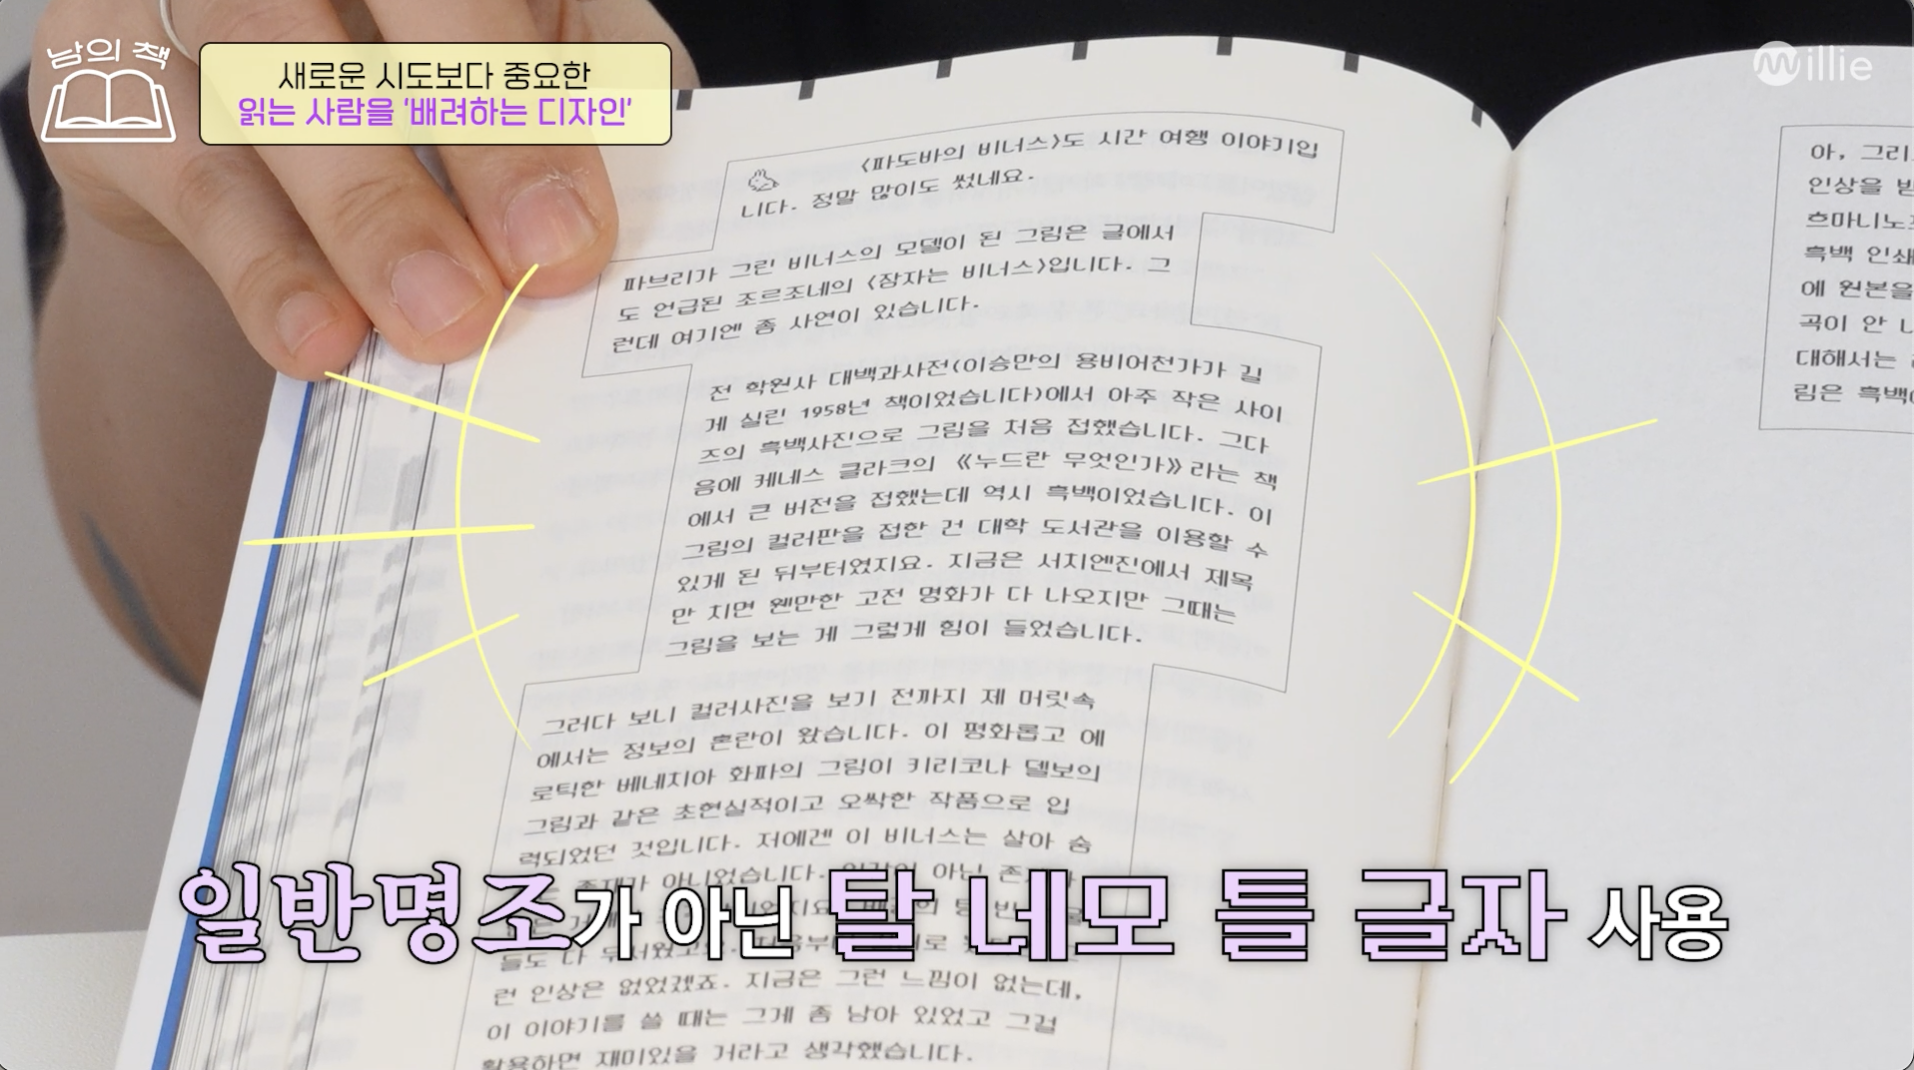 남의 책
새로운 시도보다 중요한
읽는 사람을 '배려하는 디자인'
millie
〈파도바의 비너스〉도 시간 여행 이야기입
니다. 정말 많이도 썼네요.
파브리가 그린 비너스의 모델이 된 그림은 글에서
도 언급된 조르조네의 〈잠자는 비너스〉입니다. 그
런데 여기엔 좀 사연이 있습니다.
전 학원사 대백과사전(이승만의 용비어천가가 길
게 실린 1958년 책이었습니다)에서 아주 작은 사이
즈의 흑백사진으로 그림을 처음 접했습니다. 그다
음에 케네스 클라크의 《누드란 무엇인가》라는 책
에서 큰 버전을 접했는데 역시 흑백이었습니다. 이
그림의 컬러판을 접한 건 대학 도서관을 이용할 수
있게 된 뒤부터였지요. 지금은 서치엔진에서 제목
만 치면 웬만한 고전 명화가 다 나오지만 그때는
그림을 보는 게 그렇게 힘이 들었습니다.
그러다 보니 컬러사진을 보기 전까지 제 머릿속
에서는 정보의 혼란이 왔습니다. 이 평화롭고 에
로틱한 베네치아 화파의 그림이 키리코나 델보의
그림과 같은 초현실적이고 오싹한 작품으로 입
력되었던 것입니다. 저에겐 이 비너스는 살아 숨
존재가 아니었습니다. 아닌
들도 다 무서웠고요.
런 인상은 없었겠죠. 지금은 그런 느낌이 없는데,
이 이야기를 쓸 때는 그게 좀 남아 있었고 그걸
활용하면 재미있을 거라고 생각했습니다.
아, 그리
인상을 받
흐마니노
흑백 인쇄
에 원본을
곡이 안
대해서는
림은 흑백
일반명조가 아닌 탈 네모 틀 글자 사용